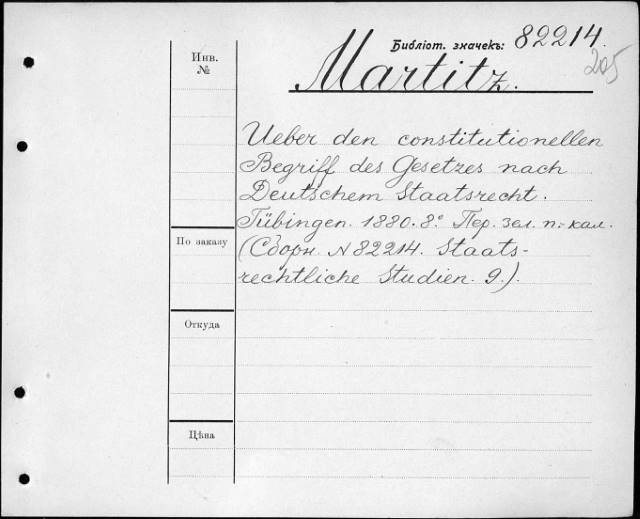 Библіот. значекъ: 82214.
205
Инв.
№
Martitz.
Ueber den constitutionellen
Begriff des Gesetzes nach
Deutschem Staatsrecht.
Tübingen. 1880. 8.º Пер. зел. п.-кал.
По заказу
(Сборн. N 82214. Staats-
rechtliche Studien. 9.).
Откуда
Цѣна